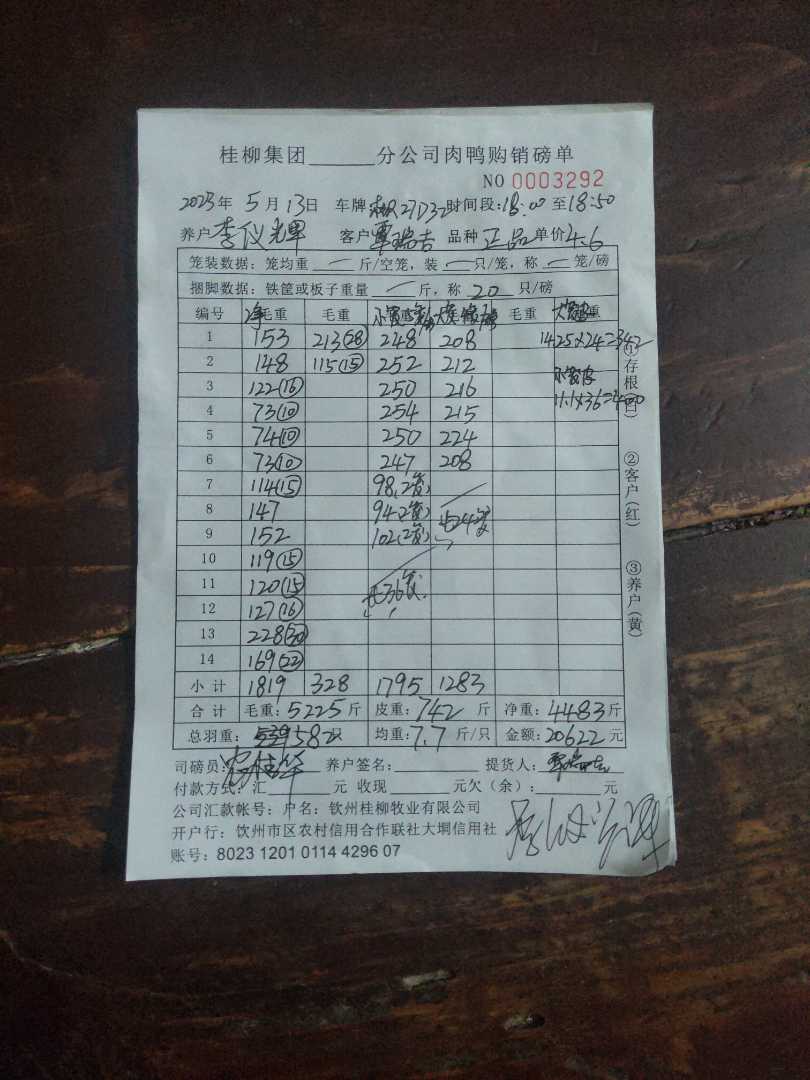 桂柳集团______分公司肉鸭购销磅单
NO 0003292
2023年 5月 13日 车牌 27D32 时间段: 18:00 至 18:50
养户 李仪 客户 覃瑞吉 品种 正品 单价 4.6
笼装数据：笼均重 — 斤/空笼，装 — 只/笼，称 — 笼/磅
捆脚数据：铁筐或板子重量 — 斤，称 20 只/磅
编号 净毛重 毛重 毛重
1 153 213(28) 248 208 1425×24=342
2 148 115(15) 252 212
3 122(16) 250 216
4 73(10) 254 215 11.1×36=400
5 74(10) 250 224
6 73(10) 247 208
7 114(15) 98(2笼)
8 147 94(2笼)
9 152 102(2笼)
10 119(15)
11 120(15)
12 127(16)
13 228(30)
14 169(22)
小计 1819 328 1795 1283
合计 毛重：5225斤 皮重：742斤 净重：4483斤
总羽重：582只 均重：7.7斤/只 金额：20622元
司磅员： 养户签名：______ 提货人：
付款方式：汇______元 收现______元欠（余）：______元
公司汇款帐号：户名：钦州桂柳牧业有限公司
开户行：钦州市区农村信用合作联社大垌信用社
账号：8023 1201 0114 4296 07
①存根（白）
②客户（红）
③养户（黄）